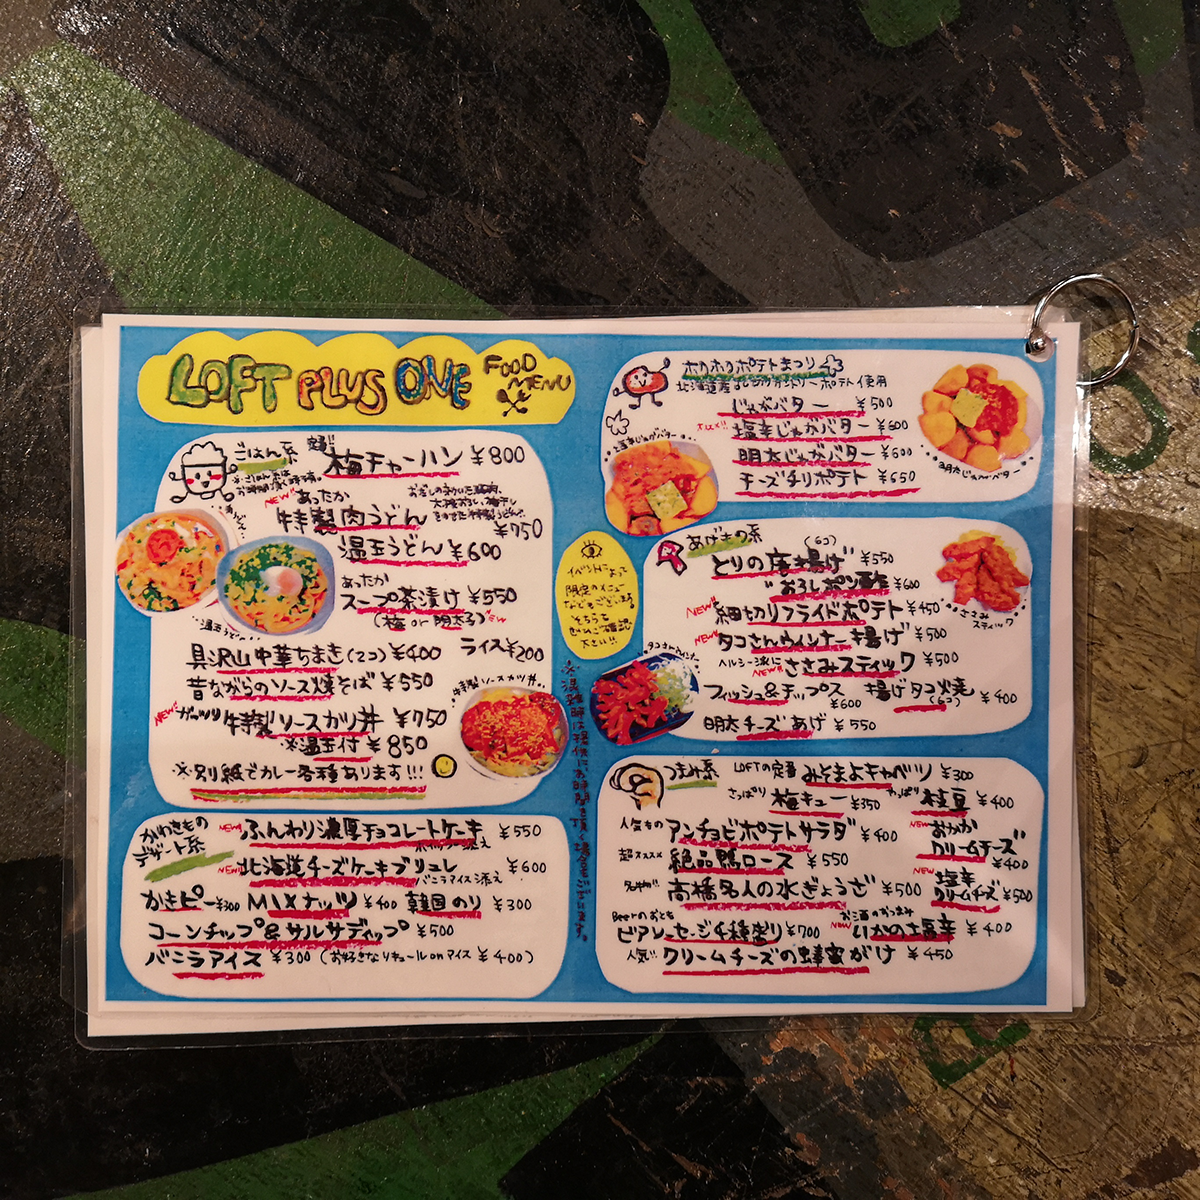 LOFT PLUS ONE FOOD MENU
ごはん系
定番!!
梅チャーハン ¥800
NEW!! あったか
特製肉うどん
¥750
温玉うどん ¥600
あったか
スープ茶漬け ¥550
(梅 or 明太子)
具沢山中華ちまき(2コ) ¥400
ライス¥200
昔ながらのソース焼そば ¥550
NEW!! ガッツリ 特製ソースカツ丼 ¥750
※温玉付 ¥850
※別紙でカレー各種あります!!!
特製ソースカツ丼
かわきもの
デザート系
NEW!! ふんわり濃厚チョコレートケーキ ¥550
ホイップ添え
NEW!! 北海道チーズケーキブリュレ ¥600
バニラアイス添え
かきピー ¥300 MIXナッツ ¥400 韓国のり ¥300
コーンチップ&サルサディップ ¥500
バニラアイス ¥300 (お好きなリキュール on アイス ¥400)
イベントによって
限定のメニュー
などもございます。
そちらも
ぜひご確認
下さい!!
ホカホカポテトまつり
じゃがバター ¥500
塩辛じゃがバター ¥600
明太じゃがバター ¥600
チーズチリポテト ¥650
塩辛じゃがバター
明太じゃがバター
あげもの系
(6コ)
とりの唐揚げ ¥550
〃おろしポン酢 ¥600
NEW!! 細切りフライドポテト ¥450
NEW!! タコさんウィンナー揚げ ¥500
ヘルシー派に NEW!! ささみスティック ¥500
フィッシュ&チップス ¥600
揚げタコ焼 (6コ) ¥400
明太チーズあげ ¥550
ささみスティック
タコさんウィンナー
つまみ系
LOFTの定番 みそまよキャベツ ¥300
さっぱり 梅キュー ¥350
やっぱり 枝豆 ¥400
人気もの アンチョビポテトサラダ ¥400
NEW!! おかか
クリームチーズ
¥400
超オススメ 絶品鴨ロース ¥550
NEW!! 塩辛
クリームチーズ ¥500
名物!! 高橋名人の水ぎょうざ ¥500
Beerのおとも
ビアソーセージ4種盛り ¥700
お酒のおつまみ
NEW!! いかの塩辛 ¥400
人気!! クリームチーズの蜂蜜がけ ¥450